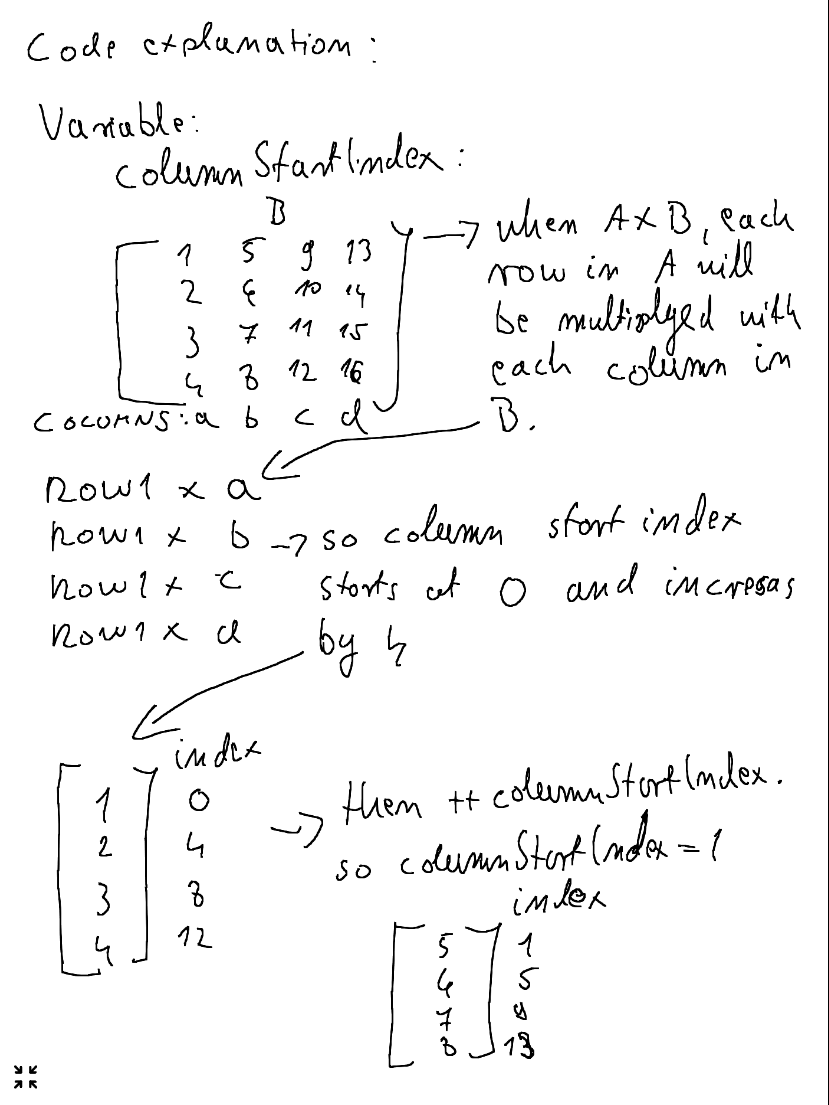 Code explanation:
Variable:
columnStartIndex:
B
1 5 9 13
2 6 10 14
3 7 11 15
4 8 12 16
COLUMNS: a b c d
→ when A x B, each
row in A will
be multiplyed with
each column in
B.
Row1 x a
Row1 x b → so column start index
Row1 x c starts at 0 and incresas
Row1 x d by 4
index
1 0
2 4
3 8
4 12
→ then ++columnStartIndex.
so columnStartIndex = 1
index
5 1
6 5
7 9
8 13